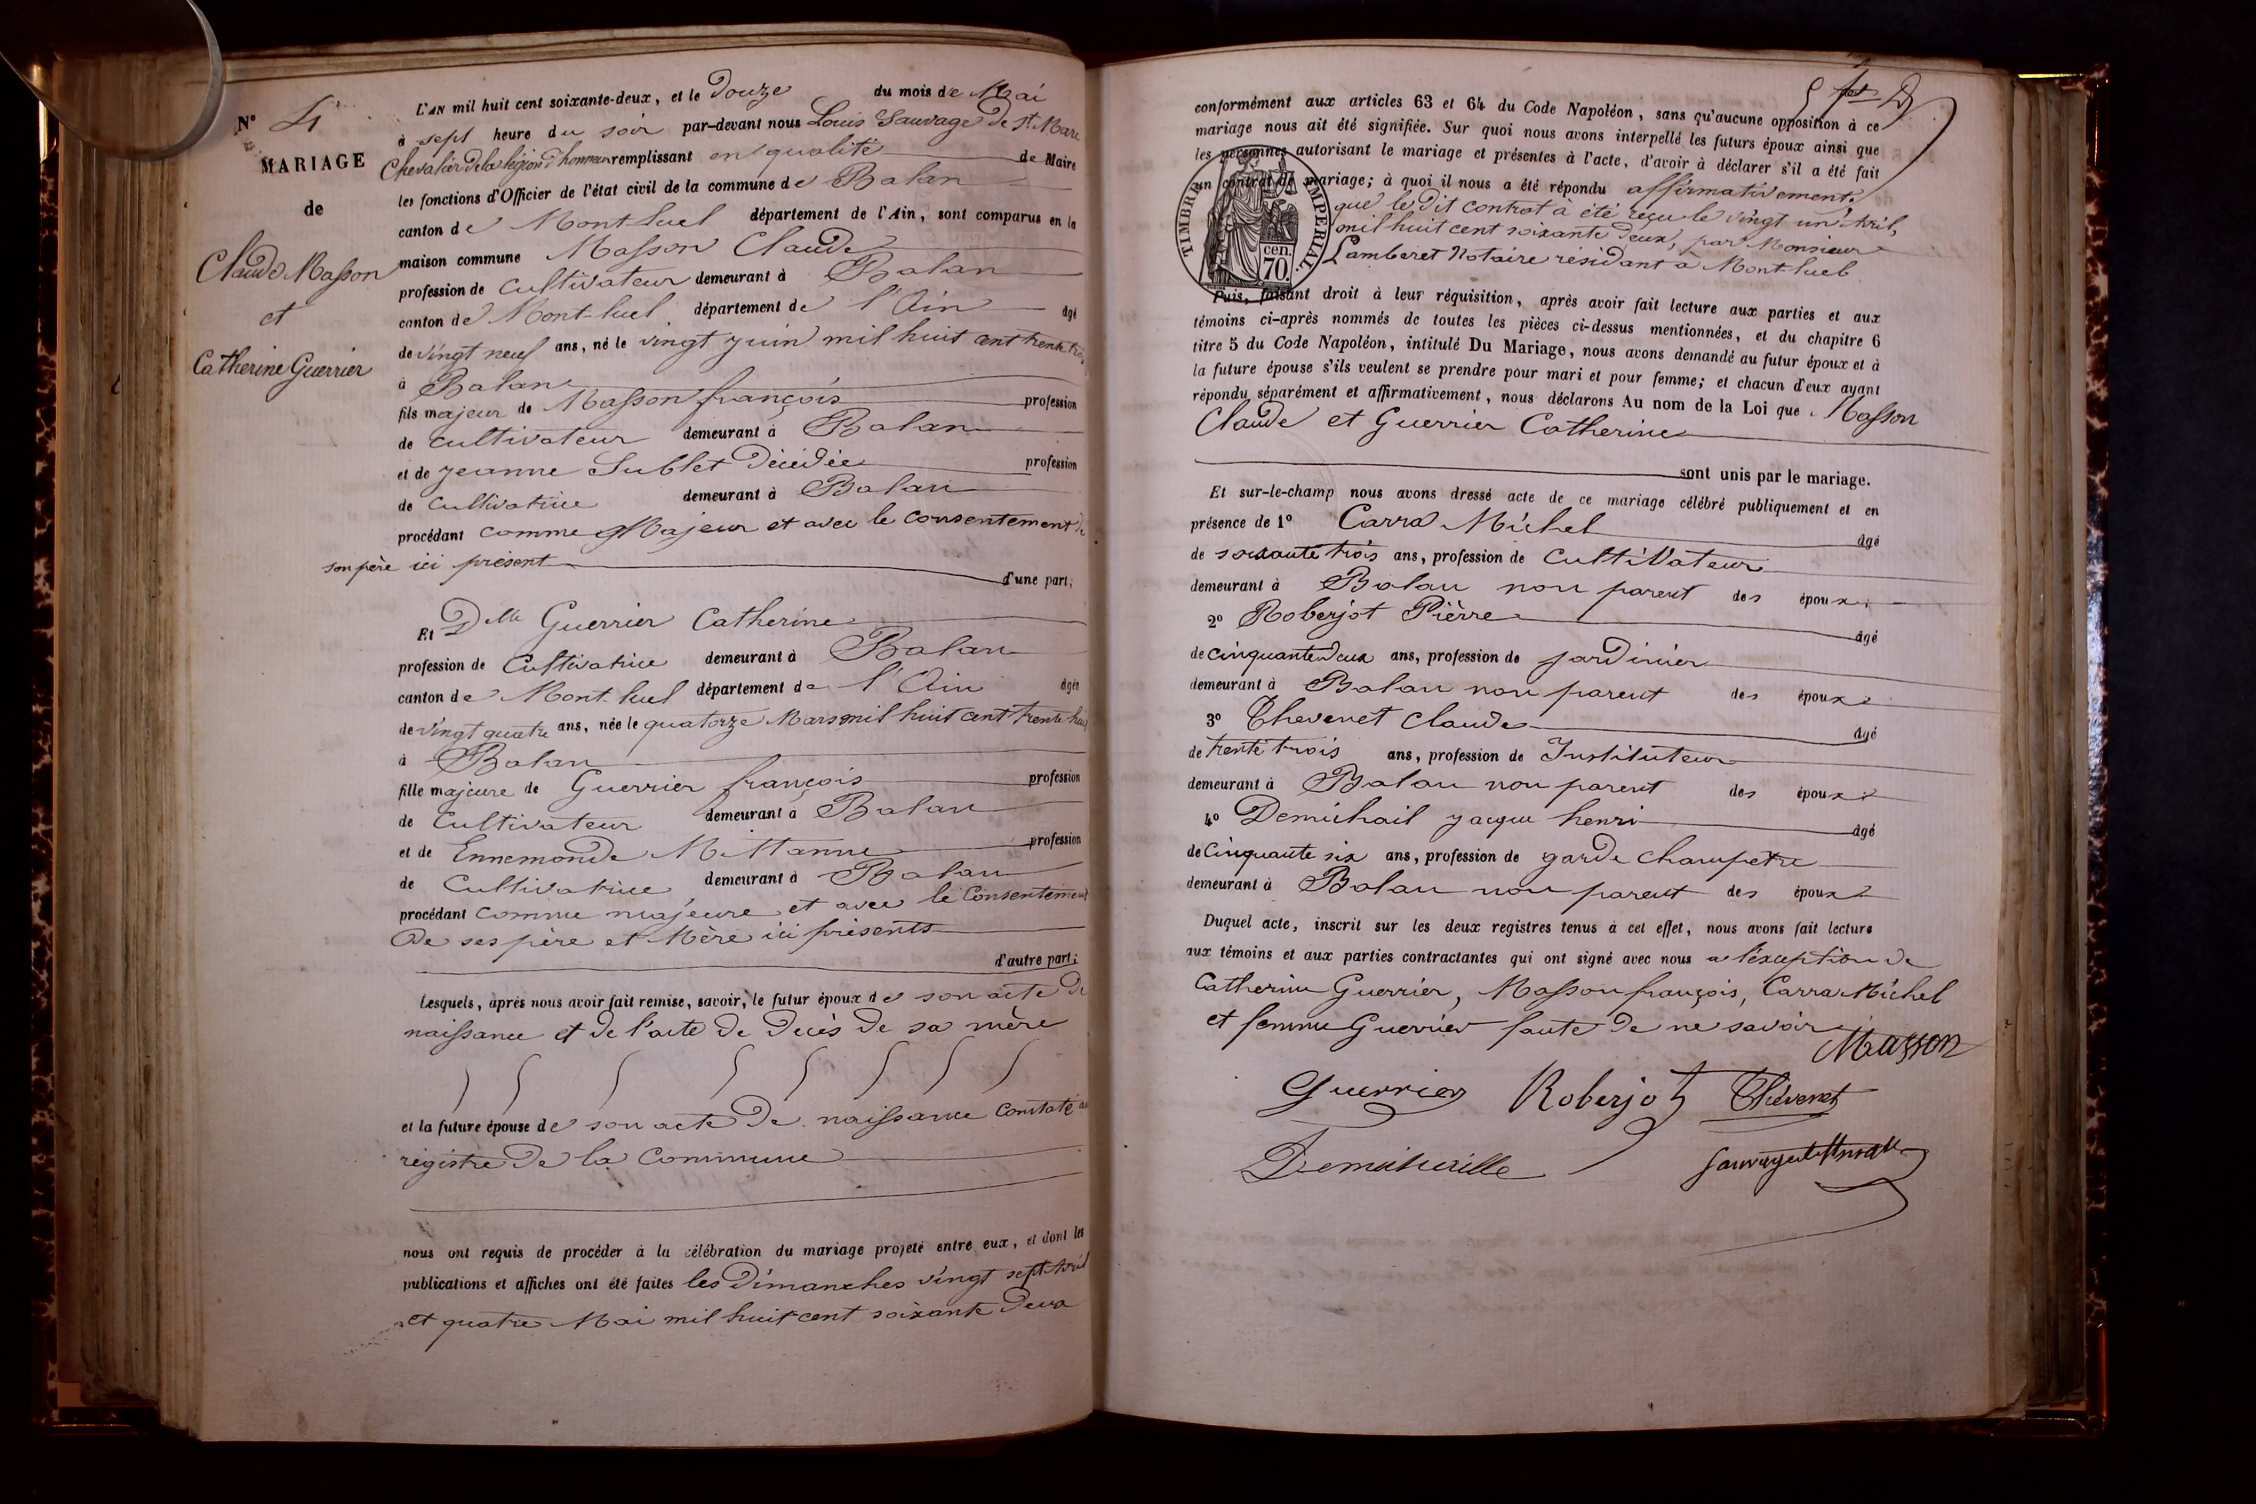 N° 4
MARIAGE
de
Claude Masson
et
Catherine Guerrier
L'AN mil huit cent soixante-deux, et le Douze du mois de Mai
à sept heure du soir par-devant nous Louis Sauvage de St. Marc
Chevalier de la légion d'honneur remplissant en qualité de Maire
les fonctions d'Officier de l'état civil de la commune de Balan
canton de Mont-luel département de l'Ain, sont comparus en la
maison commune Masson Claude
profession de Cultivateur demeurant à Balan
canton de Mont-luel département de l'Ain âgé
de vingt neuf ans, né le vingt juin mil huit cent trente trois
à Balan
fils majeur de Masson françois profession
de cultivateur demeurant à Balan
et de jeanne Sublet Décédée profession
de Cultivatrice demeurant à Balan
procédant comme Majeur et avec le consentement de
son père ici présent d'une part;
Et Delle Guerrier Catherine
profession de Cultivatrice demeurant à Balan
canton de Mont-luel département de l'Ain âgée
de vingt quatre ans, née le quatorze Mars mil huit cent trente huit
à Balan
fille majeure de Guerrier françois profession
de Cultivateur demeurant à Balan
et de Ennemonde profession
de Cultivatrice demeurant à Balan
procédant comme majeure et avec le Consentement
De ses père et Mère ici présents
d'autre part;
Lesquels, après nous avoir fait remise, savoir, le futur époux de son acte de
naissance et de l'acte de Decès de sa mère
et la future épouse de son acte de naissance constaté au
régistre de la Commune
nous ont requis de procéder à la célébration du mariage projeté entre eux, et dont les
publications et affiches ont été faites les Dimanches vingt sept Avril
et quatre Mai mil huit cent soixante Deux
conformément aux articles 63 et 64 du Code Napoléon, sans qu'aucune opposition à ce
mariage nous ait été signifiée. Sur quoi nous avons interpellé les futurs époux ainsi que
les personnes autorisant le mariage et présentes à l'acte, d'avoir à déclarer s'il a été fait
un contrat de mariage; à quoi il nous a été répondu affirmativement.
que le Dit contrat à été reçu le vingt un Avril,
mil huit cent soixante deux, par Monsieur
Lamberet Notaire résidant à Mont-luel
TIMBRE IMPERIAL.
cen.
70.
Puis, faisant droit à leur réquisition, après avoir fait lecture aux parties et aux
témoins ci-après nommés de toutes les pièces ci-dessus mentionnées, et du chapitre 6
titre 5 du Code Napoléon, intitulé Du Mariage, nous avons demandé au futur époux et à
la future épouse s'ils veulent se prendre pour mari et pour femme; et chacun d'eux ayant
répondu séparément et affirmativement, nous déclarons Au nom de la Loi que Masson
Claude et Guerrier Catherine
sont unis par le mariage.
Et sur-le-champ nous avons dressé acte de ce mariage célébré publiquement et en
présence de 1° Carra Michel âgé
de soixante trois ans, profession de Cultivateur
demeurant à Balan non parent des époux;
2° Roberjot Pièrre âgé
de cinquante deux ans, profession de jardinier
demeurant à Balan non parent des époux
3° Thevenet Claude âgé
de trente trois ans, profession de Instituteur
demeurant à Balan non parent des époux
4° Demichail jacque henri âgé
de Cinquante six ans, profession de garde champetre
demeurant à Balan non parent des époux
Duquel acte, inscrit sur les deux registres tenus à cet effet, nous avons fait lecture
aux témoins et aux parties contractantes qui ont signé avec nous a l'éxception de
Catherine Guerrier, Masson françois, Carra Michel
et femme Guerrier faute de ne savoir
Masson
Guerrier Roberjot Thévenet